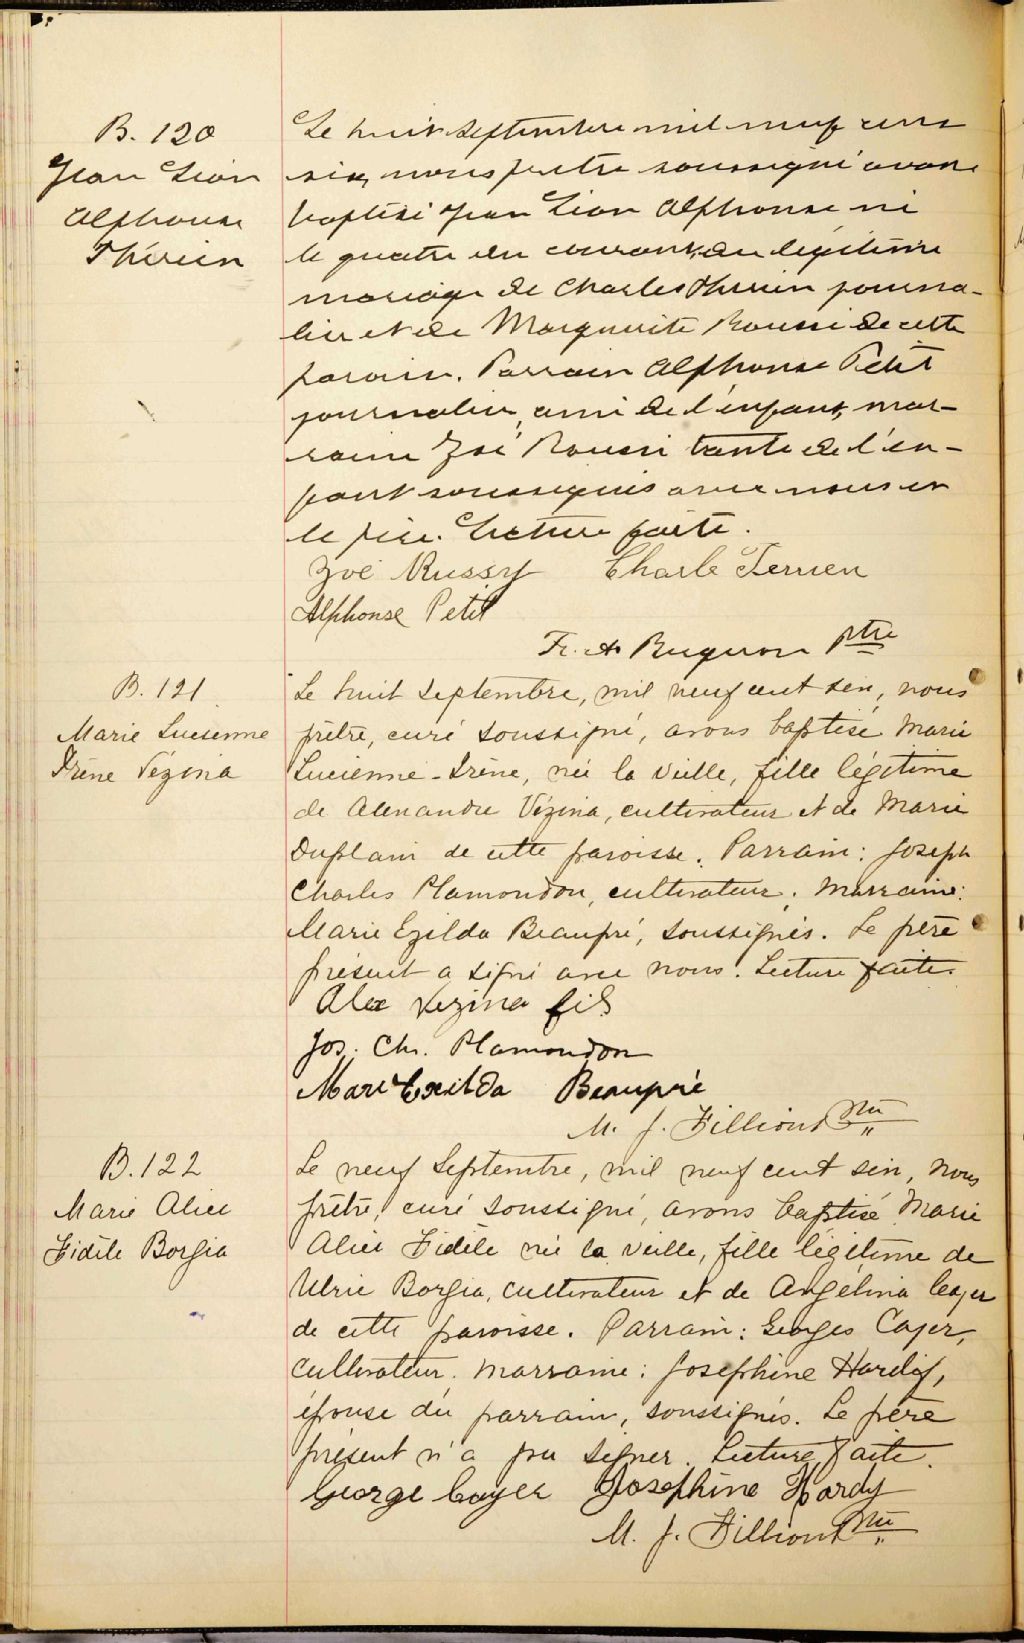 B. 120
Jean Léon
Alphonse
Thérien
Le huit septembre mil neuf cent
six, nous prêtre soussigné avons
baptisé Jean Léon Alphonse né
le quatre du courant, du légitime
mariage de Charles Thérien journa-
lier et de Marguerite Roussi de cette
paroisse. Parrain Alphonse Petit
journalier, ami de l'enfant, mar-
raine Zoé Roussi tante de l'en-
fant soussignés avec nous et
le père. Lecture faite.
Zoé Russy Charle Terrien
Alphonse Petit
Fr. A ptre
B. 121
Marie Lucienne
Irène Vézina
Le huit Septembre, mil neuf cent six, nous
prêtre, curé soussigné, avons baptisé Marie
Lucienne-Irène, née la veille, fille légitime
de Alexandre Vézina, cultivateur et de Marie
Duplain de cette paroisse. Parrain: Joseph
Charles Plamondon, cultivateur. Marraine:
Marie Ezilda Beaupré, soussignés. Le père
présent a signé avec nous. Lecture faite.
Alex Vezina fils
Jos. Chs. Plamondon
Mari Exilda Beaupré
M. J. Filliont Ptre
B. 122
Marie Alice
Fidèle Borgia
Le neuf Septembre, mil neuf cent six, nous
prêtre, curé soussigné, avons baptisé Marie
Alice Fidèle née la veille, fille légitime de
Ulric Borgia, cultivateur et de Angélina Cayer
de cette paroisse. Parrain: Georges Cayer,
cultivateur. Marraine: Josephine Hardy,
épouse du parrain, soussignés. Le père
présent n'a pu signer. Lecture faite.
George Cayer Josephine Hardy
M. J. Filliont Ptre